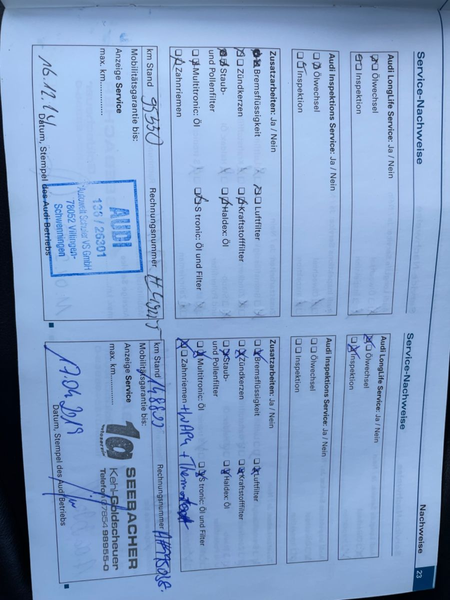 Nachweise
23
Service-Nachweise
Audi LongLife Service: Ja / Nein
Ölwechsel
Inspektion
Audi Inspektions Service: Ja / Nein
Ölwechsel
Inspektion
Zusatzarbeiten: Ja / Nein
Bremsflüssigkeit
Luftfilter
Zündkerzen
Kraftstofffilter
Staub-
und Pollenfilter
Haldex: Öl
Multitronic: Öl
S tronic: Öl und Filter
Zahnriemen
km Stand
Rechnungsnummer
Mobilitätsgarantie bis:
Anzeige Service
max. km
AUDI
78052 Villingen-
Schwenningen
16.12.14
Datum, Stempel des Audi Betriebs
Service-Nachweise
Audi LongLife Service: Ja / Nein
Ölwechsel
Inspektion
Audi Inspektions Service: Ja / Nein
Ölwechsel
Inspektion
Zusatzarbeiten: Ja / Nein
Bremsflüssigkeit
Luftfilter
Zündkerzen
Kraftstofffilter
Staub-
und Pollenfilter
Haldex: Öl
Multitronic: Öl
S tronic: Öl und Filter
Zahnriemen
km Stand
Rechnungsnummer
Mobilitätsgarantie bis:
Anzeige Service
max. km
SEEBACHER
Kehl-Goldscheuer
Telefon 07854 98955-0
17.04.2019
Datum, Stempel des Audi Betriebs